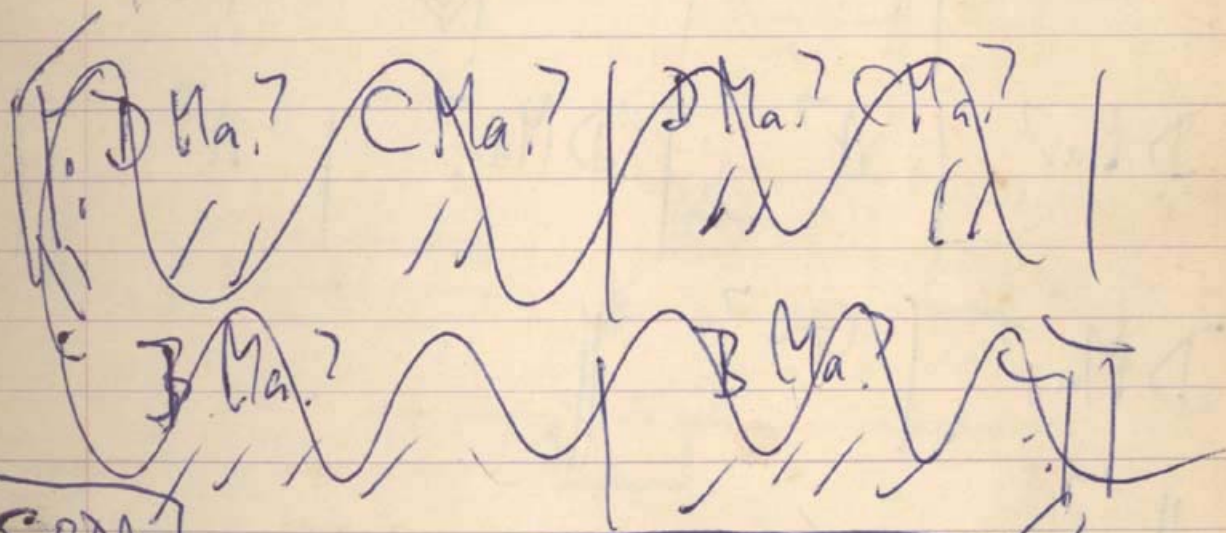 D Ma7 C Ma7 | D Ma7 C Ma7 |
B Ma7 | B Ma7
CODA